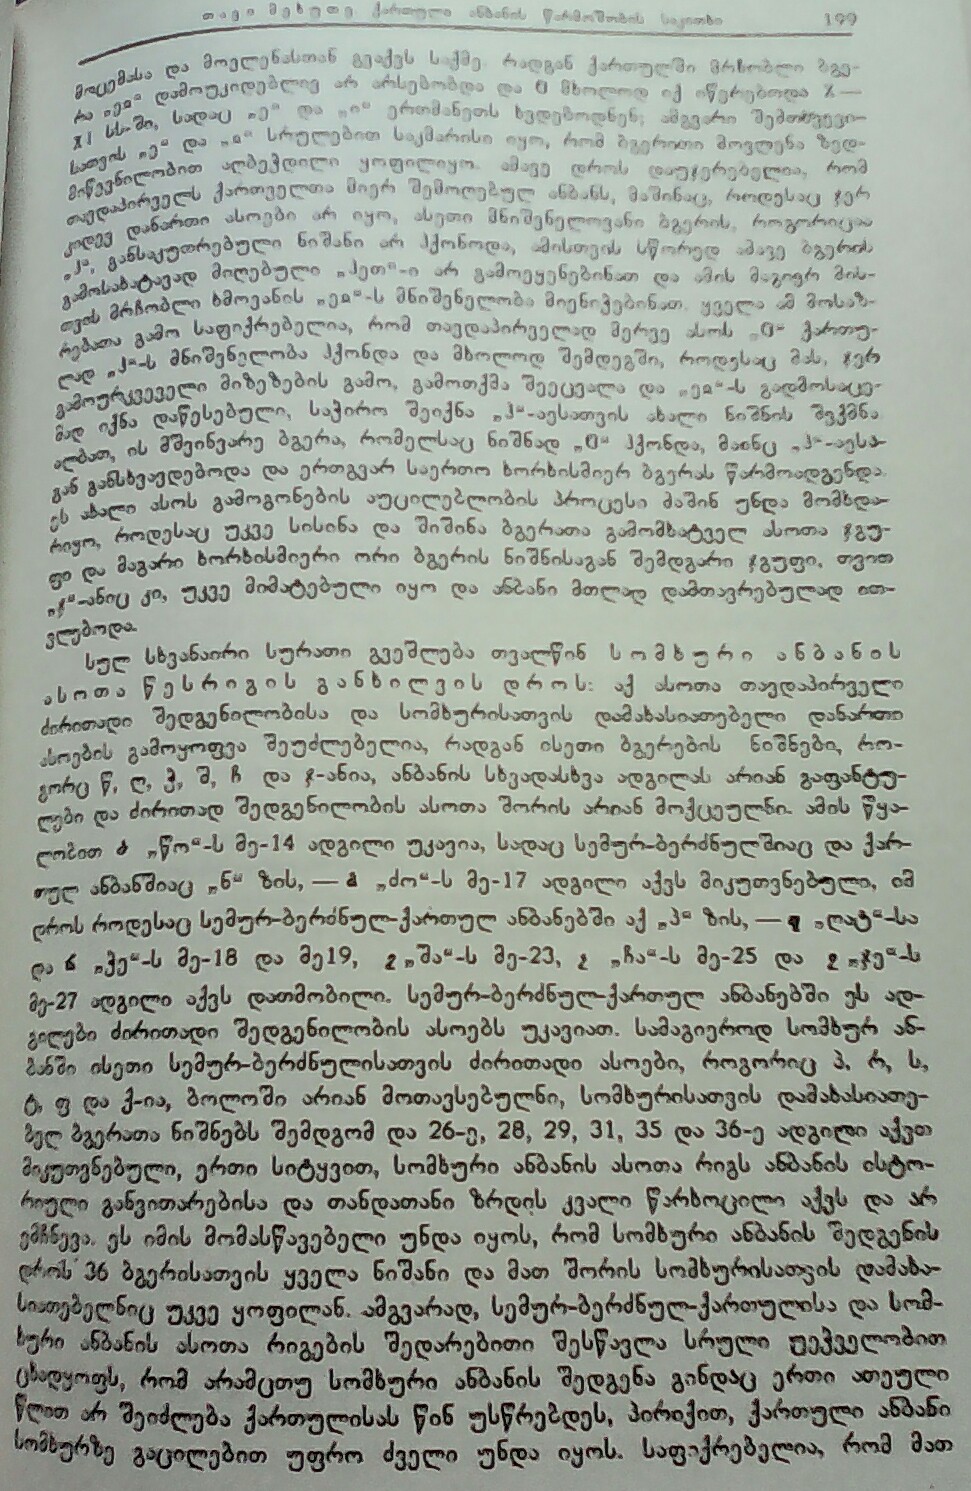 თავი მეხუთე ქართული ანბანის წარმოშობის საკითხი 199
მოცემასა და მოვლენასთან გვაქვს საქმე. რადგან ქართულში მრჩობლი ბგე-
რა „ეჲ“ დამოუკიდებლივ არ არსებობდა და მხოლოდ იქ იწერებოდა X—
XI სს-ში, სადაც „ე“ და „ი“ ერთმანეთს ხვდებოდნენ, ამგვარი შემთხვევი-
სათვის „ე“ და „ჲ“ სრულებით საკმარისი იყო, რომ ბგერითი მოვლენა ზედ-
მიწევნილობით აღბეჭდილი ყოფილიყო. ამავე დროს დაუჯერებელია, რომ
თავდაპირველს ქართველთა მიერ შემოღებულ ანბანს, მაშინაც, როდესაც ჯერ
კიდევ დანართი ასოები არ იყო, ასეთი მნიშვნელოვანი ბგერის, როგორიცაა
„ჰ“, განსაკუთრებული ნიშანი არ ჰქონოდა, ამისთვის სწორედ ამავე ბგერის
გამოსახატავად მიღებული „ჰეთ“-ი არ გამოეყენებინათ და ამის მაგიერ მის-
თვის მრჩობლი ხმოვანის „ეჲ“-ს მნიშვნელობა მიენიჭებინათ. ყველა ამ მოსაზ-
რებათა გამო საფიქრებელია, რომ თავდაპირველად მერვე ასოს ქართუ-
ლად „ჰ“-ს მნიშვნელობა ჰქონდა და მხოლოდ შემდეგში, როდესაც მას, ჯერ
გამოურკვეველი მიზეზების გამო, გამოთქმა შეეცვალა და „ეჲ“-ს გადმოსაცე-
მად იქნა დაწესებული, საჭირო შეიქნა „ჰ“-აესათვის ახალი ნიშნის შექმნა
ალბათ, ის მშვინვარე ბგერა, რომელსაც ნიშნად ჰქონდა, მაინც „ჰ“-აესა-
გან განსხვავდებოდა და ერთგვარ საერთო ხორხისმიერ ბგერას წარმოადგენდა.
ეს ახალი ასოს გამოგონების აუცილებლობის პროცესი მაშინ უნდა მომხდა-
რიყო, როდესაც უკვე სისინა და შიშინა ბგერათა გამომხატველ ასოთა ჯგუ-
ფი და მაგარი ხორხისმიერი ორი ბგერის ნიშნისაგან შემდგარი ჯგუფი, თვით
„ჯ“-ანიც კი, უკვე მიმატებული იყო და ანბანი მთლად დამთავრებულად ით-
ვლებოდა.
სულ სხვანაირი სურათი გვეშლება თვალწინ სომხური ანბანის
ასოთა წესრიგის განხილვის დროს: აქ ასოთა თავდაპირველი
ძირითადი შედგენილობისა და სომხურისათვის დამახასიათებელი დანართი
ასოების გამოყოფვა შეუძლებელია, რადგან ისეთი ბგერების ნიშნები, რო-
გორც წ, ღ, ჭ, შ, ჩ და ჯ-ანია, ანბანის სხვადასხვა ადგილას არიან გაფანტუ-
ლები და ძირითად შედგენილობის ასოთა შორის არიან მოქცეულნი. ამის წყა-
ლობით „წო“-ს მე-14 ადგილი უკავია, სადაც სემურ-ბერძნულშიაც და ქარ-
თულ ანბანშიაც „ნ“ ზის, — „ძო“-ს მე-17 ადგილი აქვს მიკუთვნებული, იმ
დროს როდესაც სემურ-ბერძნულ-ქართულ ანბანებში აქ „პ“ ზის, — „ღატ“-სა
და „ჭე“-ს მე-18 და მე19, „შა“-ს მე-23, „ჩა“-ს მე-25 და „ჯე“-ს
მე-27 ადგილი აქვს დათმობილი. სემურ-ბერძნულ-ქართულ ანბანებში ეს ად-
გილები ძირითადი შედგენილობის ასოებს უკავიათ. სამაგიეროდ სომხურ ან-
ბანში ისეთი სემურ-ბერძნულისათვის ძირითადი ასოები, როგორიც პ, რ, ს,
ტ, ფ და ქ-ია, ბოლოში არიან მოთავსებულნი, სომხურისათვის დამახასიათე-
ბელ ბგერათა ნიშნებს შემდგომ და 26-ე, 28, 29, 31, 35 და 36-ე ადგილი აქვთ
მიკუთვნებული, ერთი სიტყვით, სომხური ანბანის ასოთა რიგს ანბანის ისტო-
რიული განვითარებისა და თანდათანი ზრდის კვალი წარხოცილი აქვს და არ
ემჩნევა. ეს იმის მომასწავებელი უნდა იყოს, რომ სომხური ანბანის შედგენის
დროს 36 ბგერისათვის ყველა ნიშანი და მათ შორის სომხურისათვის დამახა-
სიათებელნიც უკვე ყოფილან. ამგვარად, სემურ-ბერძნულ-ქართულისა და სომ-
ხური ანბანის ასოთა რიგების შედარებითი შესწავლა სრული უეჭველობით
ცხადყოფს, რომ არამცთუ სომხური ანბანის შედგენა გინდაც ერთი ათეული
წლით არ შეიძლება ქართულისას წინ უსწრებდეს, პირიქით, ქართული ანბანი
სომხურზე გაცილებით უფრო ძველი უნდა იყოს. საფიქრებელია, რომ მათ